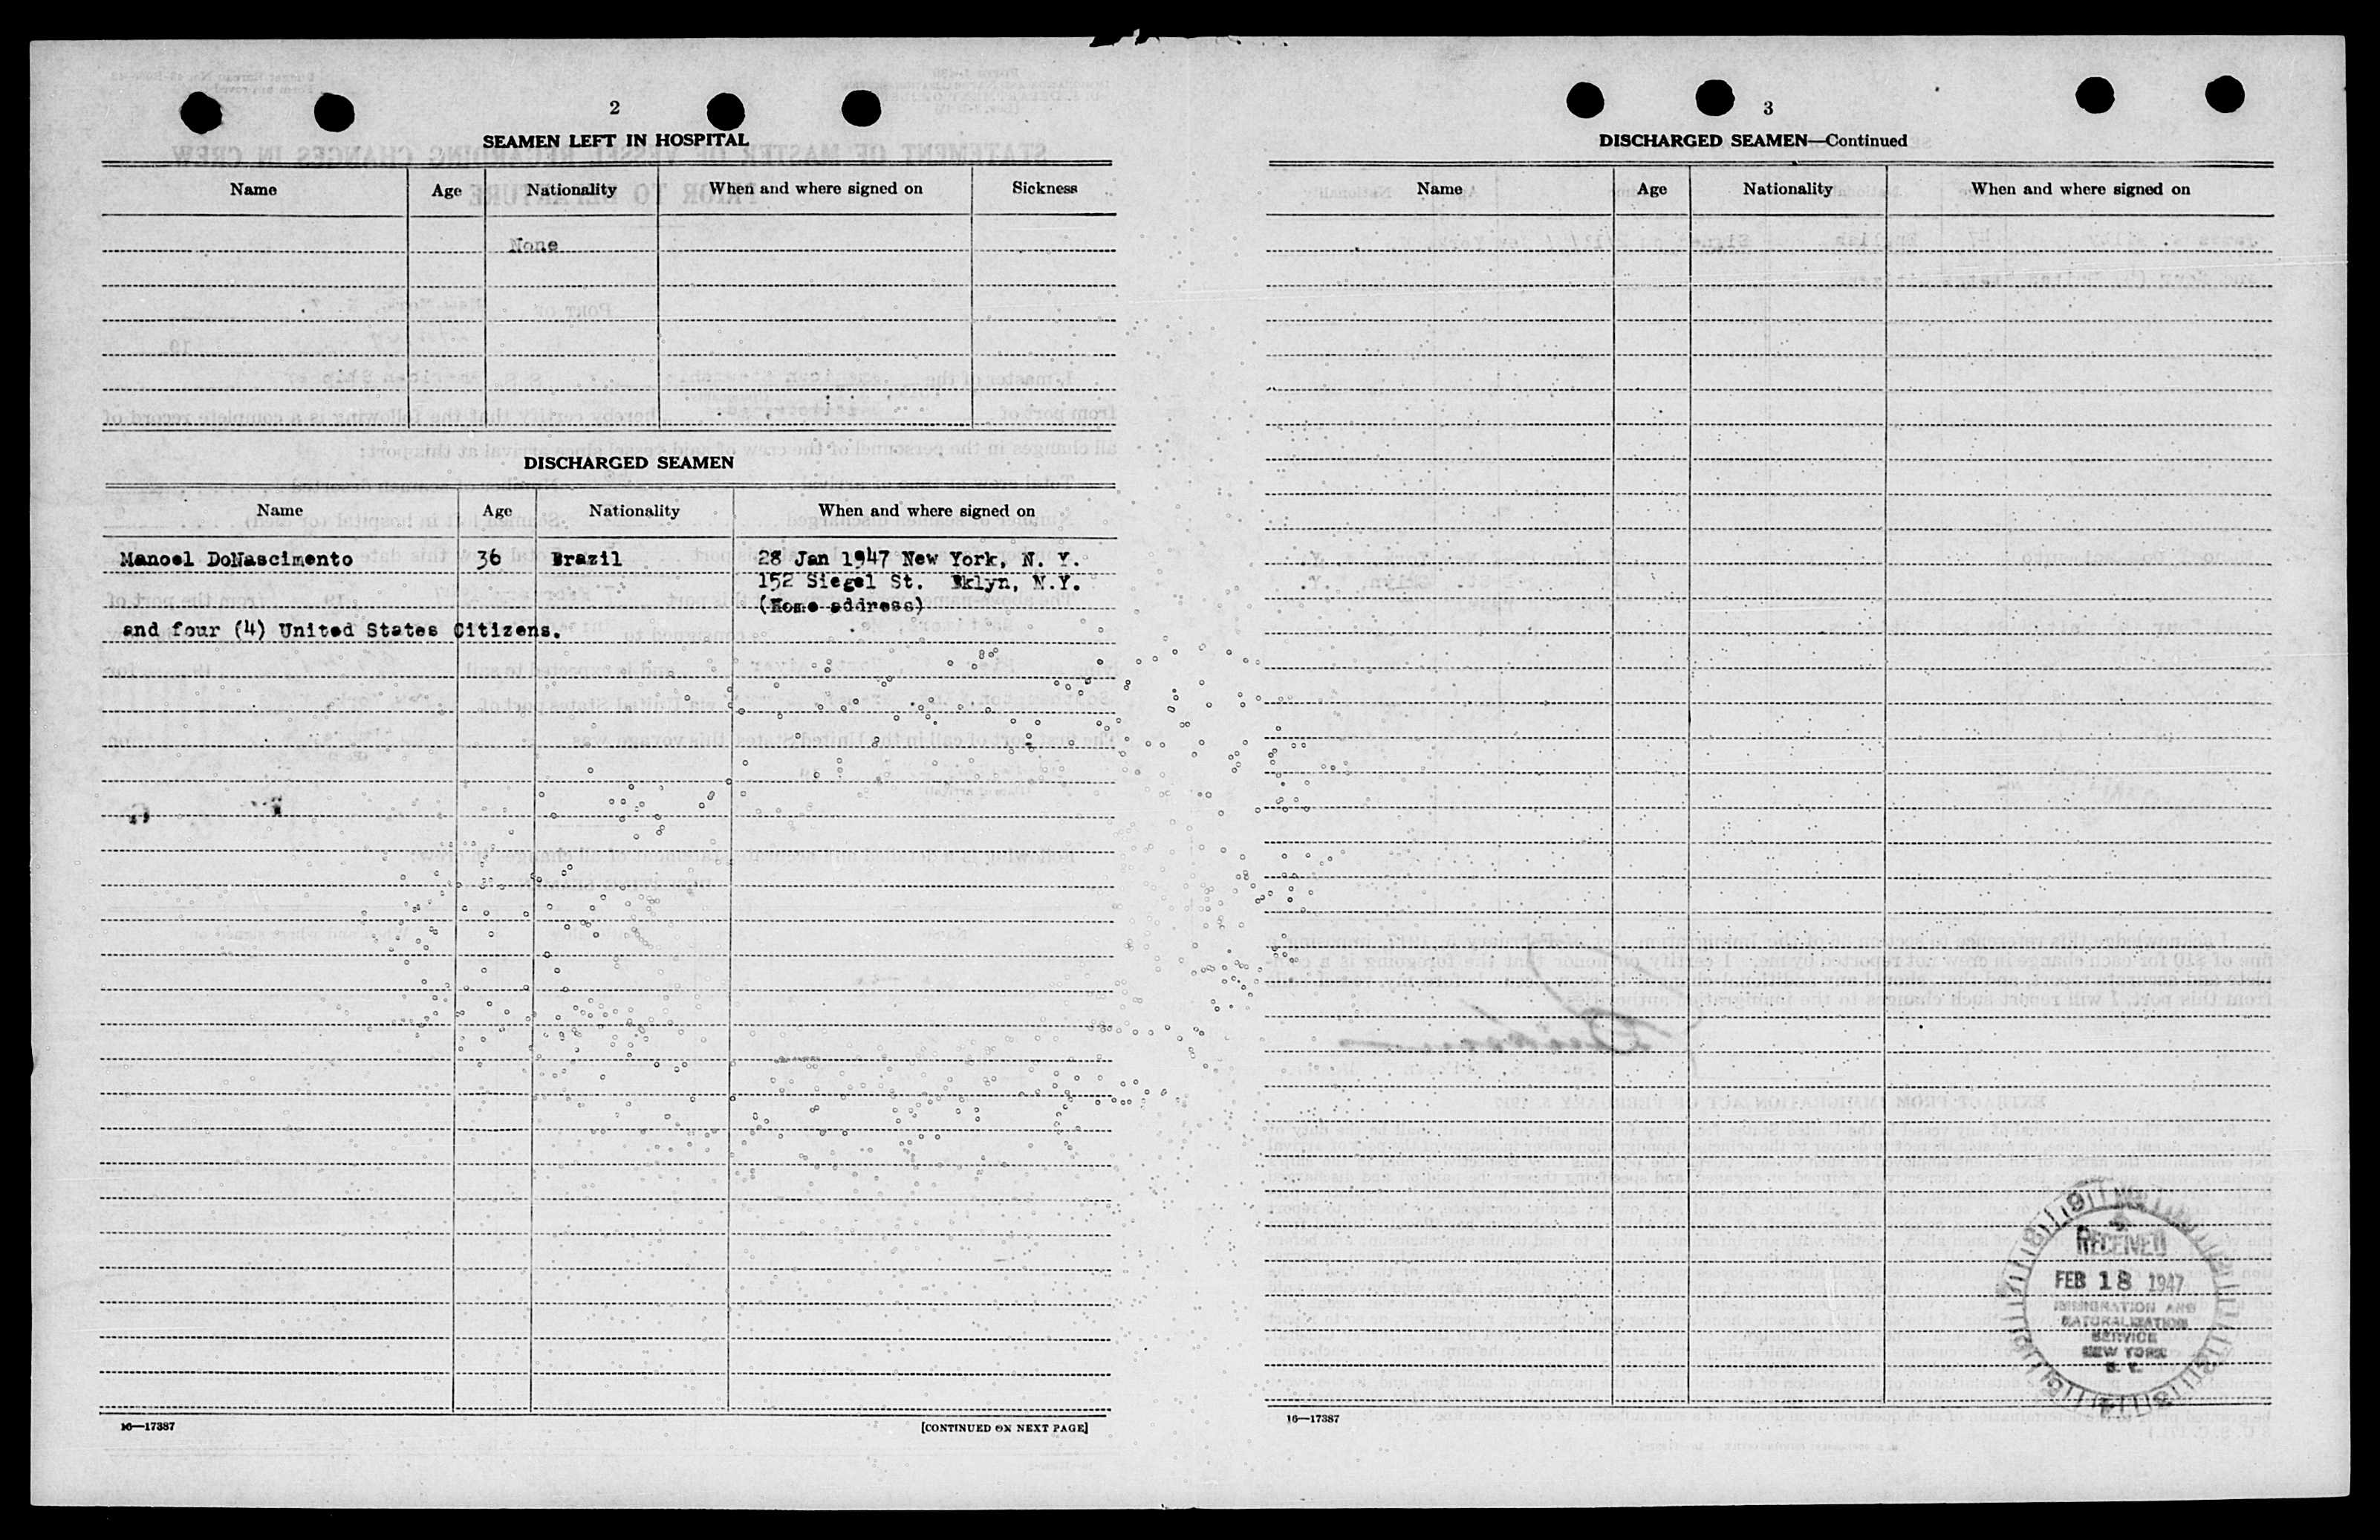 2
SEAMEN LEFT IN HOSPITAL
Name Age Nationality When and where signed on Sickness
None
DISCHARGED SEAMEN
Name Age Nationality When and where signed on
Manoel DoNascimento 36 Brazil 28 Jan 1947 New York, N. Y.
152 Siegel St. Bklyn, N.Y.
(Home address)
and four (4) United States Citizens.
16—17387 [CONTINUED ON NEXT PAGE]
3
DISCHARGED SEAMEN—Continued
Name Age Nationality When and where signed on
RECEIVED
FEB 18 1947
IMMIGRATION AND
NATURALIZATION
SERVICE
NEW YORK
N. Y.
16—17387